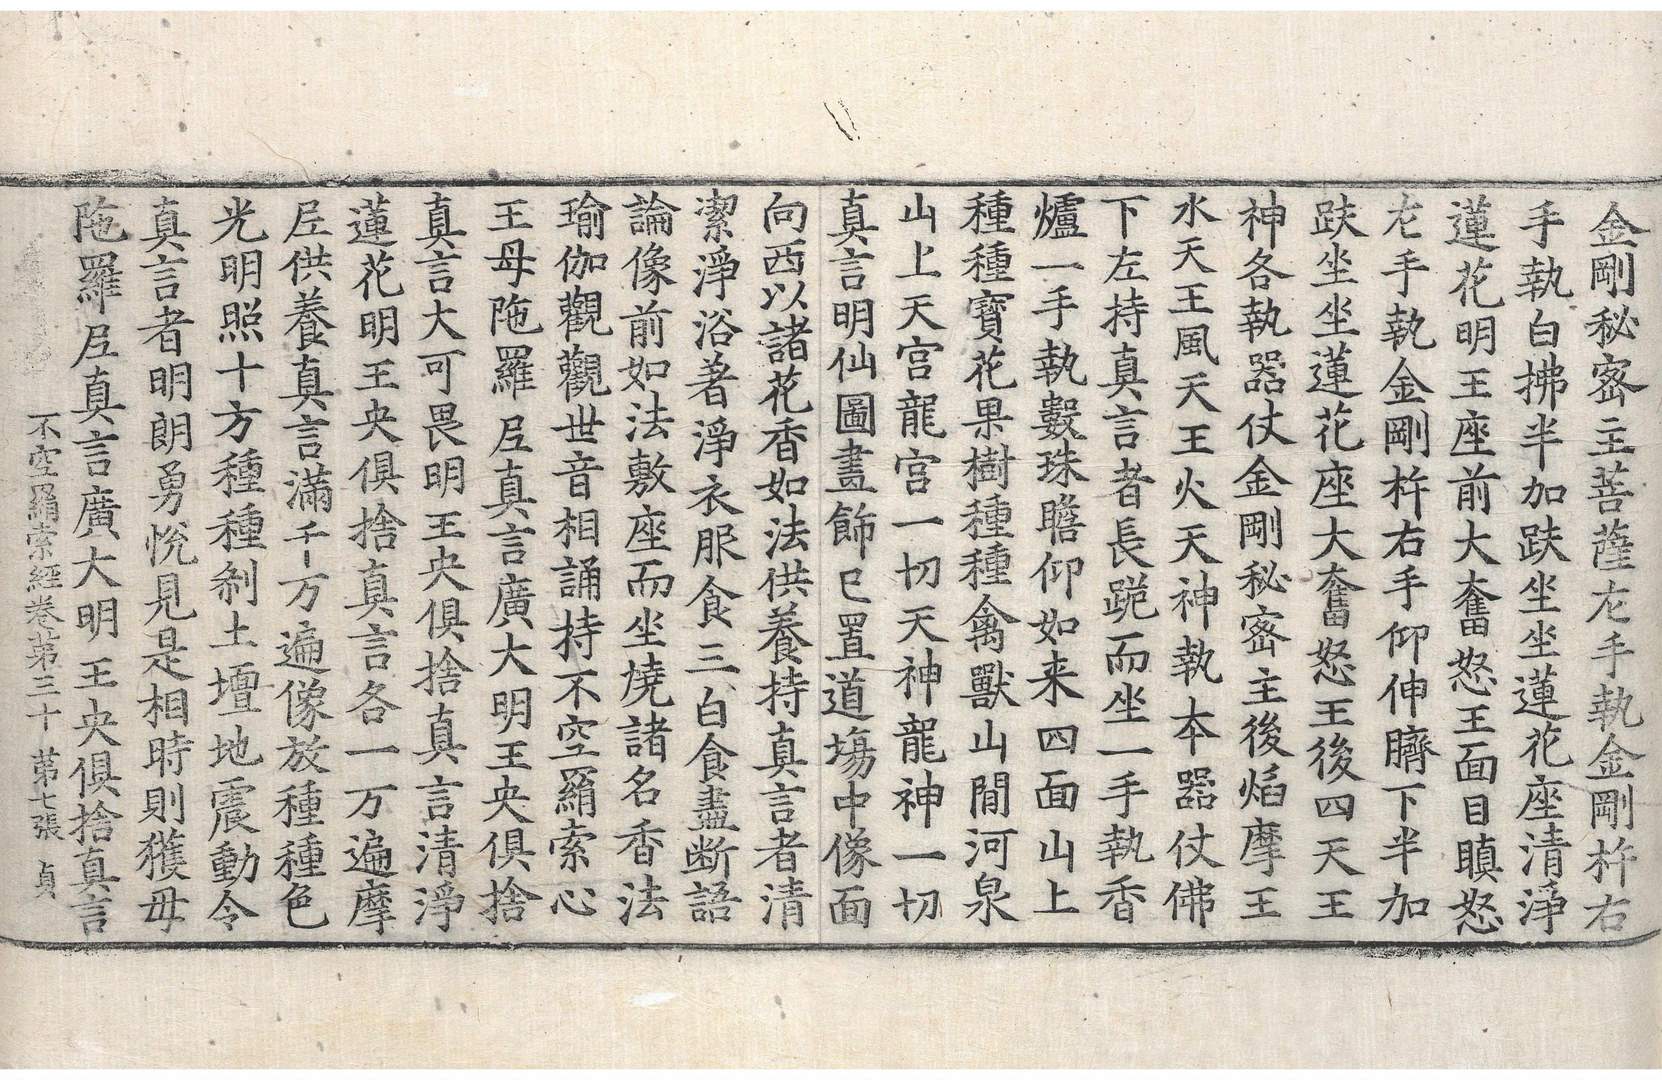 金剛秘密主菩薩左手執金剛杵右
手執白拂半加趺坐坐蓮花座清淨
蓮花明王座前大奮怒王面目瞋怒
左手執金剛杵右手仰伸臍下半加
趺坐坐蓮花座大奮怒王後四天王
神各執器仗金剛秘密主後焰摩王
水天王風天王火天神執本器仗佛
下左持真言者長跪而坐一手執香
爐一手執數珠瞻仰如来四面山上
種種寶花果樹種種禽獸山間河泉
山上天宮龍宮一切天神龍神一切
真言明仙圖畫飾已置道場中像面
向西以諸花香如法供養持真言者清
潔淨浴著淨衣服食三白食盡断語
論像前如法敷座而坐燒諸名香法
瑜伽觀觀世音相誦持不空羂索心
王母陁羅尼真言廣大明王央俱捨
真言大可畏明王央俱捨真言清淨
蓮花明王央俱捨真言各一万遍摩
尼供養真言滿千万遍像放種種色
光明照十方種種刹土壇地震動令
真言者明朗勇悅見是相時則獲母
陁羅尼真言廣大明王央俱捨真言
不空羂索經卷第三十 第七張 貞